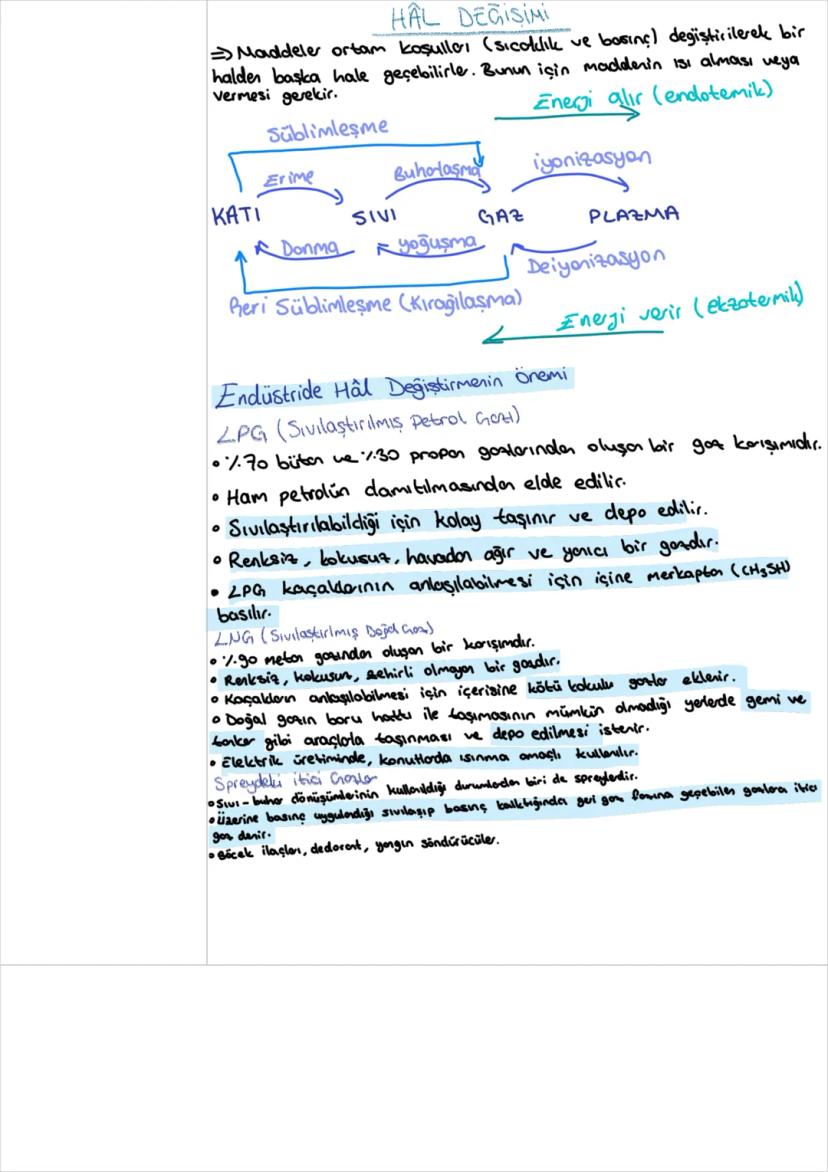 HÂL DEĞİŞİMİ
⇒ Maddeler ortam koşulları (sıcaklık ve basınç) değiştirilerek bir
halden başka hale geçebilirler. Bunun için maddenin ısı alması veya
vermesi gerekir.
Energi alır (endotemik)
Süblimleşme
Erime
Buharlaşma
iyonizasyon
KATI SIVI GAZ PLAZMA
Donma
yoğuşma
Deiyonizasyon
Geri Süblimleşme (Kırağılaşma)
Energi verir (ekzotemik)
Endüstride Hâl Değiştirmenin Önemi
LPG (Sıvılaştırılmış Petrol Gazı)
• %70 bütan ve %30 propan gazlarından oluşan bir gaz karışımıdır.
• Ham petrolün damıtılmasından elde edilir.
• Sıvılaştırılabildiği için kolay taşınır ve depo edilir.
• Renksiz, kokusuz, havadan ağır ve yanıcı bir gazdır.
• LPG kaçaklarının anlaşılabilmesi için içine merkaptan (CH3SH)
basılır.
LNG (Sıvılaştırlmış Doğal Gaz)
• %90 metan gazından oluşan bir karışımdır.
• Renksiz, kokusuz, zehirli olmayan bir gazdır.
• Kaçakların anlaşılabilmesi için içerisine kötü kokulu gazlar eklenir.
• Doğal gazın boru hattı ile taşımasının mümkün olmadığı yerlerde gemi ve
tanker gibi araçlarla taşınması ve depo edilmesi istenir.
• Elektrik üretiminde, konutlarda ısınma amaçlı kullanılır.
Spreydeki itici Gazlar
• Sıvı-buhar dönüşümlerinin kullanıldığı durumlardan biri de spreylerdir.
• Üzerine basınç uygulandığı sıvılaşıp basınç kalktığında geri gaz formuna geçebilen gazlara itici
gaz denir.
• Böcek ilaçları, dedorant, yangın söndürücüler.